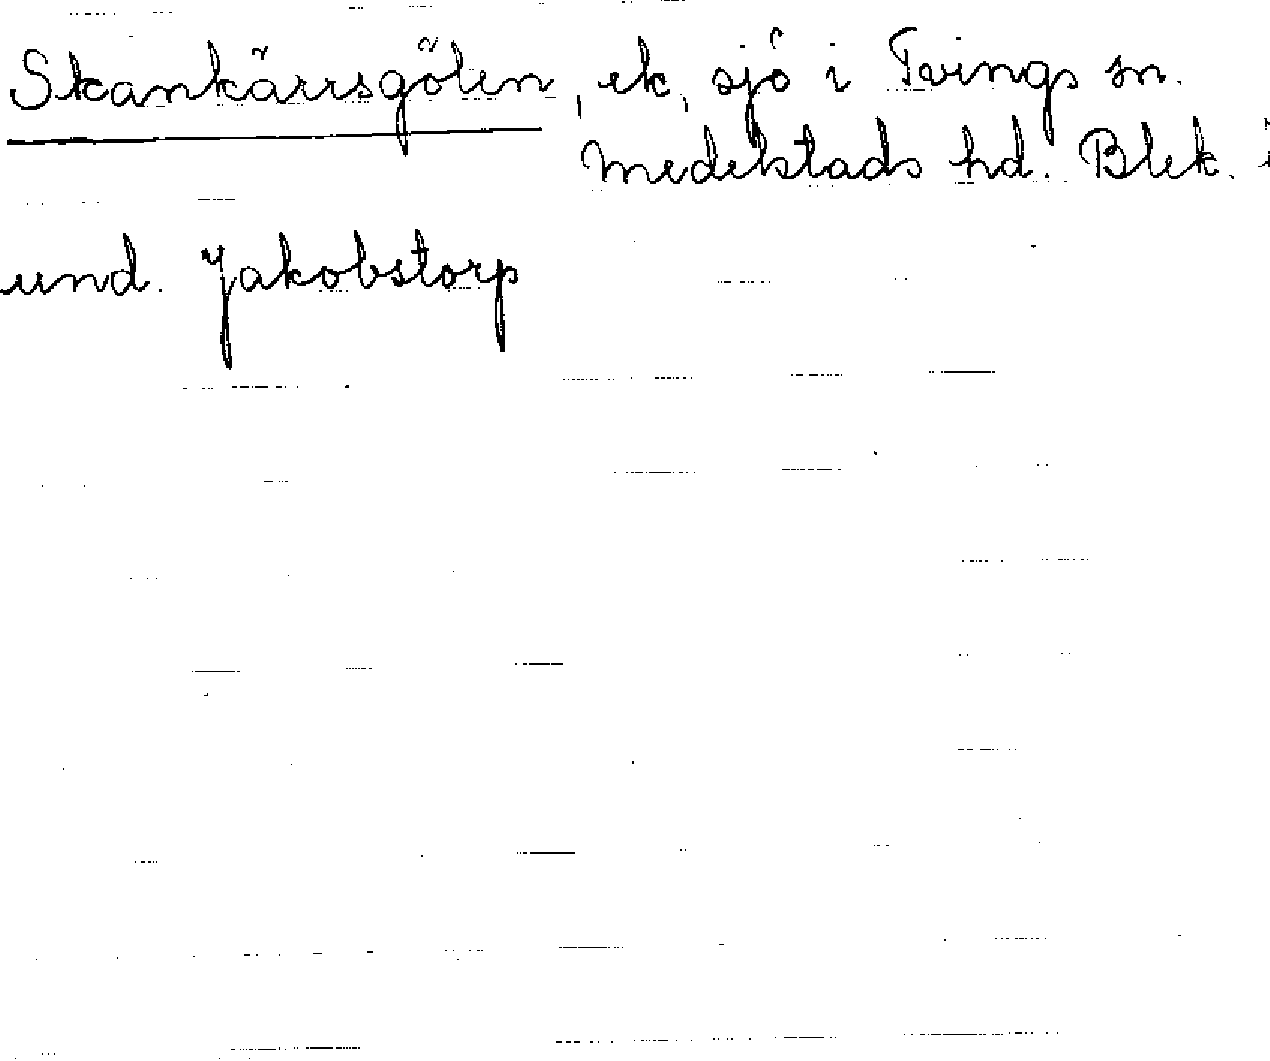 Skankärrsgölen, ek, sjö i Tvings sn.
Medelstads hd. Blek. i
und. Jakobstorp